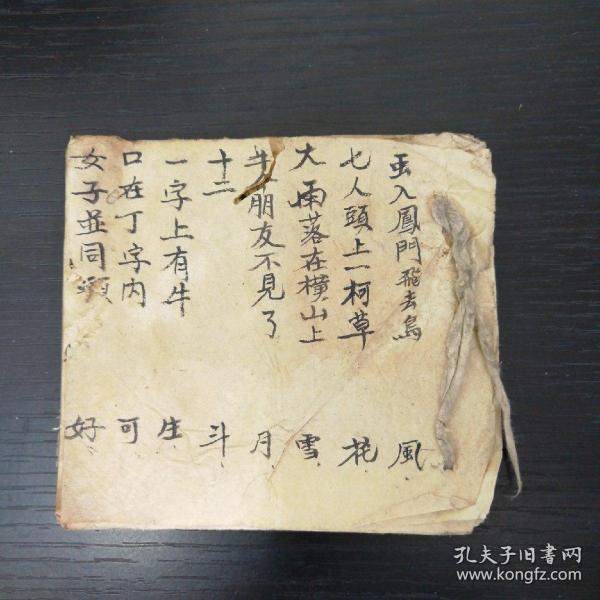 虫入鳳門飛去鳥 風
七人頭上一柯草 花
大雨落在橫山上 雪
朋友不見了 月
十二 斗
一字上有牛 生
口在丁字内 可
女子並同頭 好
孔夫子旧书网
www.kongfz.com